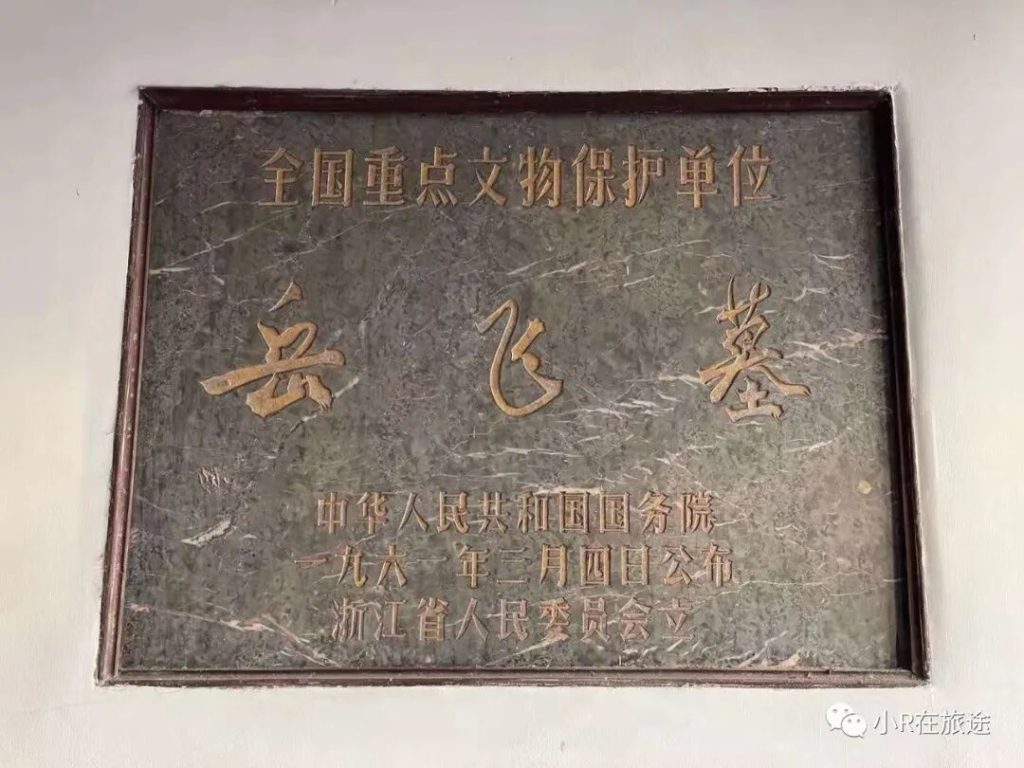 全国重点文物保护单位
岳飞墓
中华人民共和国国务院
一九六一年三月四日公布
浙江省人民委员会立
小R在旅途